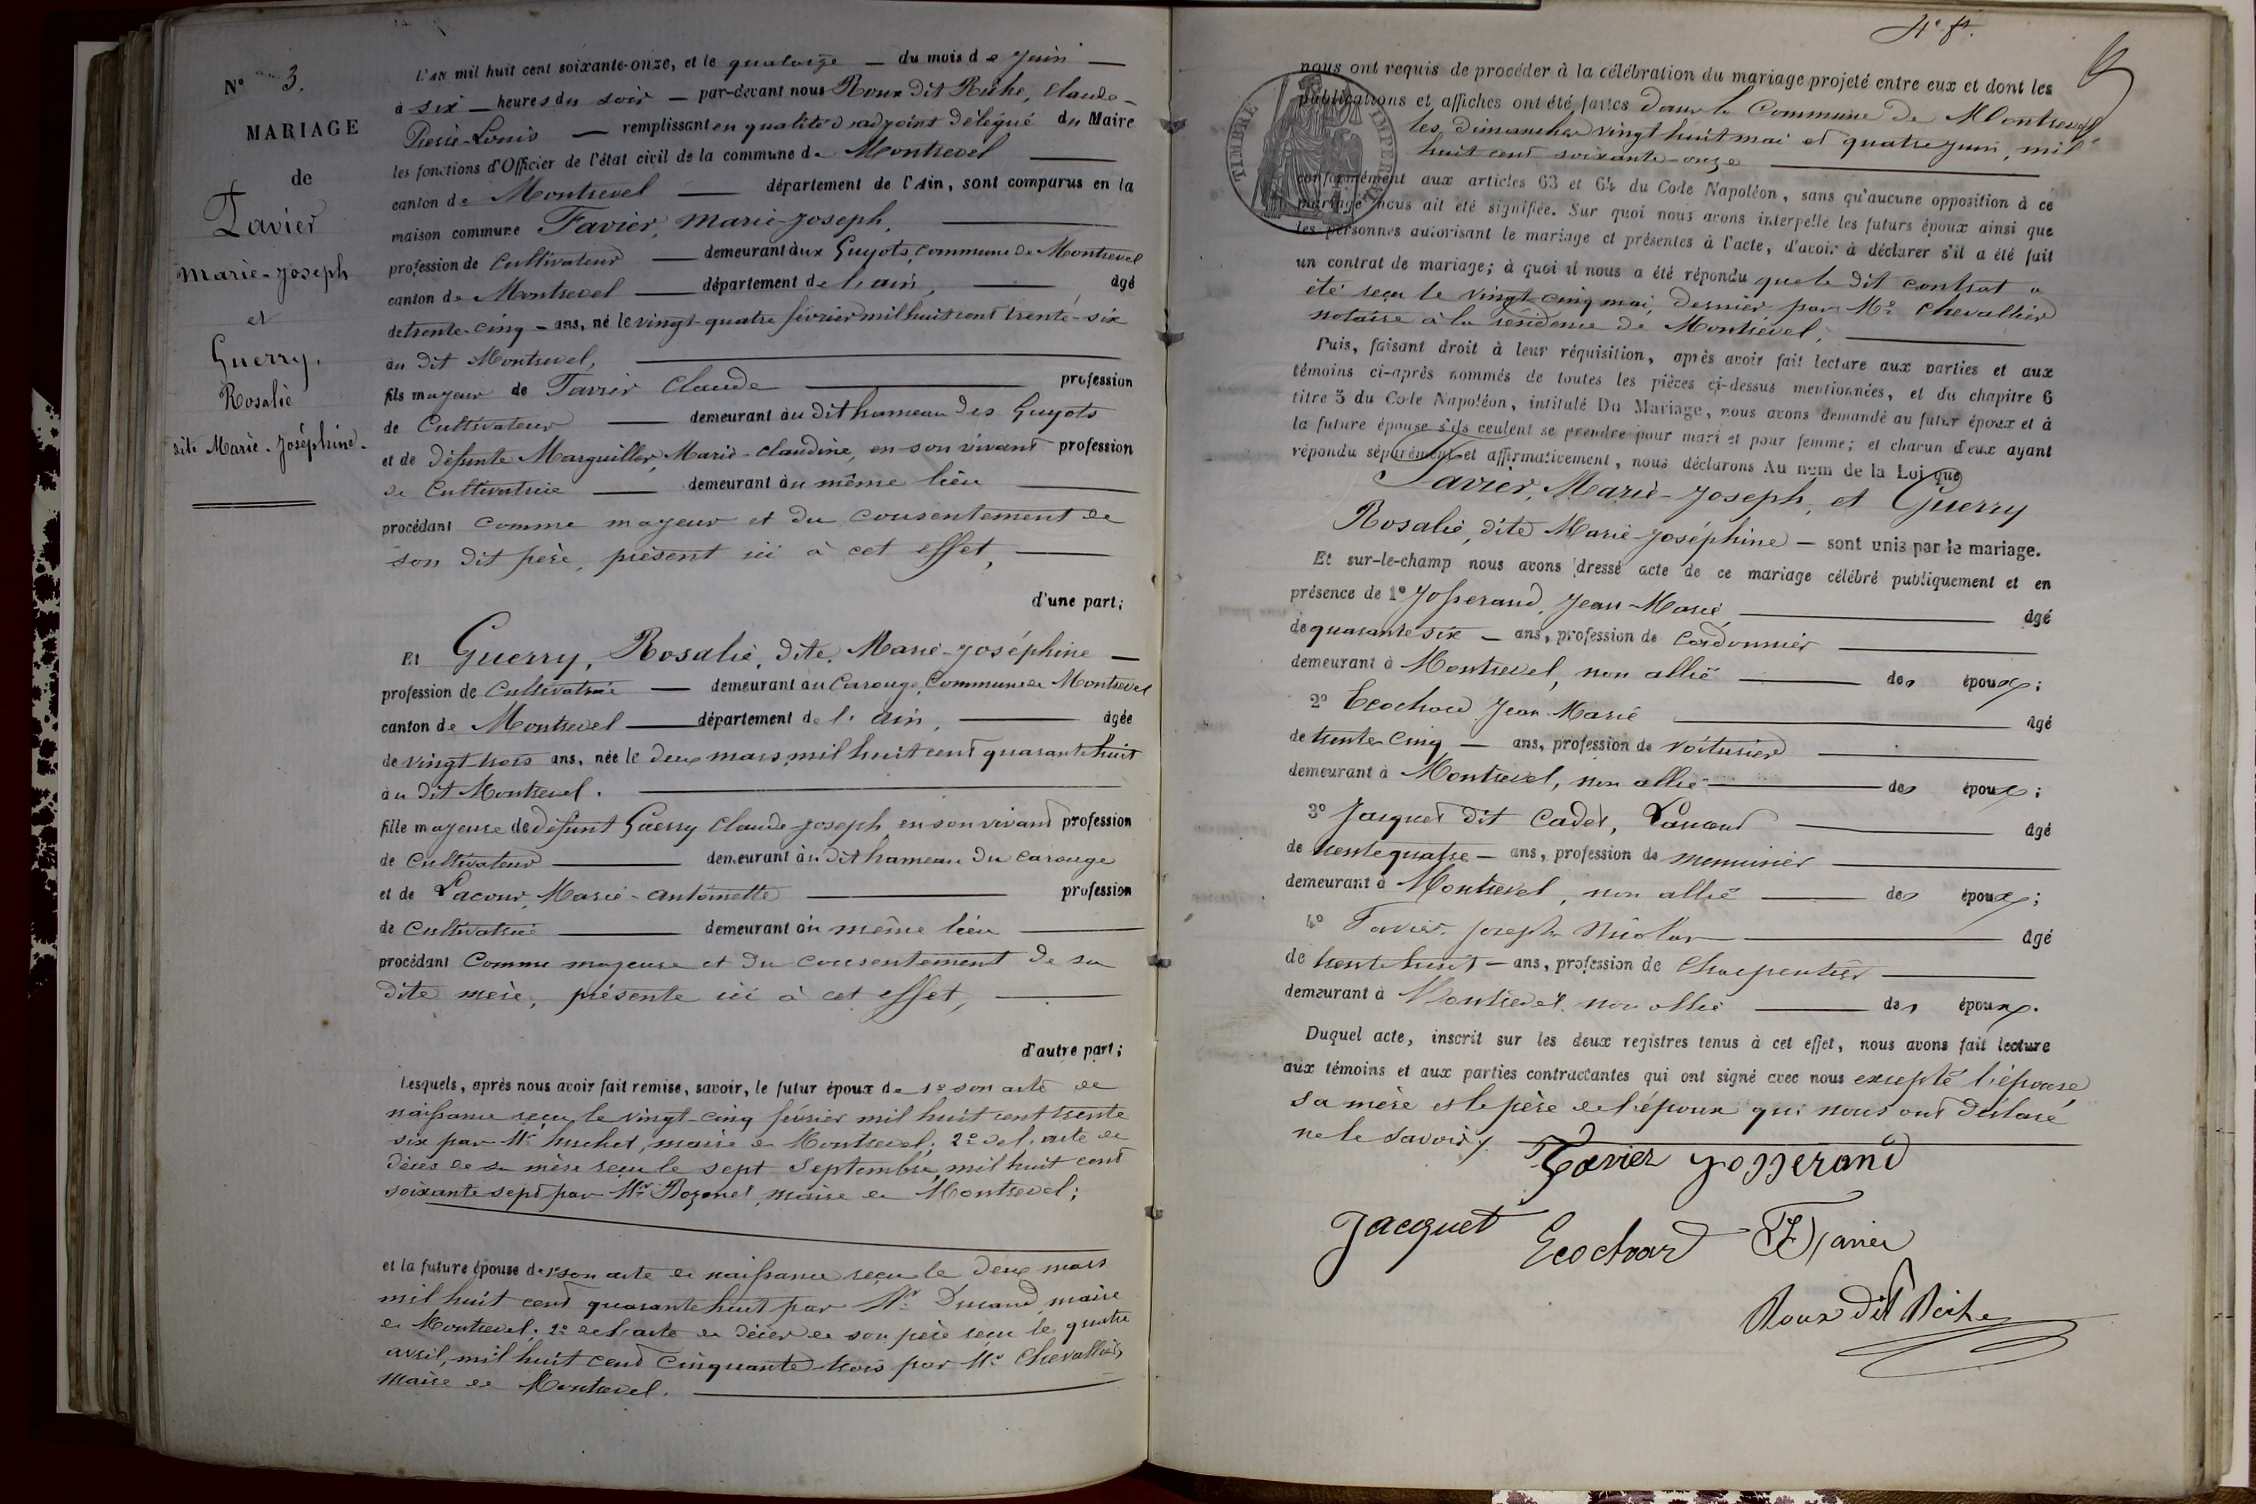 N° 3.
MARIAGE
de
Favier
Marie-Joseph
et
Guerry,
Rosalie
dite Marie-Joséphine.
L'an mil huit cent soixante-onze, et le quatorze du mois de Juin
à six heures du soir par-devant nous Roux dit Riche, Claude-
Pierre-Louis remplissant en qualité d'adjoint délégué du Maire
les fonctions d'Officier de l'état civil de la commune de Montrevel
canton de Montrevel département de l'Ain, sont comparus en la
maison commune Favier, Marie-Joseph,
profession de Cultivateur demeurant aux Guyots, Commune de Montrevel
canton de Montrevel département de l'ain, âgé
de trente-cinq ans, né le vingt-quatre février mil huit cent trente-six
au dit Montrevel,
fils majeur de Favier Claude profession
de Cultivateur demeurant au dit hameau des Guyots
et de défunte Marguiller, Marie-Claudine, en son vivant profession
de Cultivatrice demeurant au même lieu
procédant comme majeur et du consentement de
son dit père, présent ici à cet effet,
d'une part;
Et Guerry, Rosalie, dite, Marie-Joséphine
profession de Cultivatrice demeurant au Carouge, Commune de Montrevel
canton de Montrevel département de l'ain, âgée
de vingt-trois ans, née le deux mars, mil huit cent quarante huit
au dit Montrevel.
fille majeure de défunt Guerry Claude-Joseph, en son vivant profession
de Cultivateur demeurant au dit hameau du Carouge
et de Lacour, Marie-Antoinette profession
de Cultivatrice demeurant au même lieu
procédant comme majeure et du consentement de sa
dite mère, présente ici à cet effet,
d'autre part;
Lesquels, après nous avoir fait remise, savoir, le futur époux de 1° son acte de
naissance reçu le vingt-cinq février mil huit cent trente
six par Mr maire de Montrevel; 2° de l'acte de
décès de sa mère reçu le sept Septembre, mil huit cent
soixante sept par Mr maire de Montrevel;
et la future épouse de 1° son acte de naissance reçu le deux mars
mil huit cent quarante huit par Mr Durand, maire
de Montrevel; 2° de l'acte de décès de son père reçu le quatre
avril, mil huit cent cinquante-trois par Mr Chevallier,
maire de Montrevel.
4e ft.
nous ont requis de procéder à la célébration du mariage projeté entre eux et dont les
publications et affiches ont été faites dans la Commune de Montrevel
les dimanches vingt huit mai et quatre juin, mil
huit cent soixante-onze
TIMBRE IMPERIAL
conformément aux articles 63 et 64 du Code Napoléon, sans qu'aucune opposition à ce
mariage nous ait été signifiée. Sur quoi nous avons interpellé les futurs époux ainsi que
les personnes autorisant le mariage et présentes à l'acte, d'avoir à déclarer s'il a été fait
un contrat de mariage; à quoi il nous a été répondu que le dit contrat a
été reçu le vingt-cinq mai, dernier, par Me Chevallier
notaire à la résidence de Montrevel,
Puis, faisant droit à leur réquisition, après avoir fait lecture aux parties et aux
témoins ci-après nommés de toutes les pièces ci-dessus mentionnées, et du chapitre 6
titre 5 du Code Napoléon, intitulé Du Mariage, nous avons demandé au futur époux et à
la future épouse s'ils veulent se prendre pour mari et pour femme; et chacun d'eux ayant
répondu séparément et affirmativement, nous déclarons Au nom de la Loi que
Favier, Marie-Joseph, et Guerry
Rosalie, dite Marie-Joséphine sont unis par le mariage.
Et sur-le-champ nous avons dressé acte de ce mariage célébré publiquement et en
présence de 1° Josserand, Jean-Marie, âgé
de quarante six ans, profession de Cordonnier
demeurant à Montrevel, non allié des époux;
2° Ecochard Jean Marie âgé
de trente Cinq ans, profession de voiturier
demeurant à Montrevel, non allié des époux;
3° Jacquet dit Cadet, Laurent âgé
de trente quatre ans, profession de menuisier
demeurant à Montrevel, non allié des époux;
4° Favier Joseph Nicolas âgé
de trente huit ans, profession de Charpentier
demeurant à Montrevel, non allié des époux.
Duquel acte, inscrit sur les deux registres tenus à cet effet, nous avons fait lecture
aux témoins et aux parties contractantes qui ont signé avec nous excepté l'épouse,
sa mère et le père de l'époux qui nous ont déclaré
ne le savoir.
Favier Josserand
Jacquet Ecochard Favier
Roux dit Riche